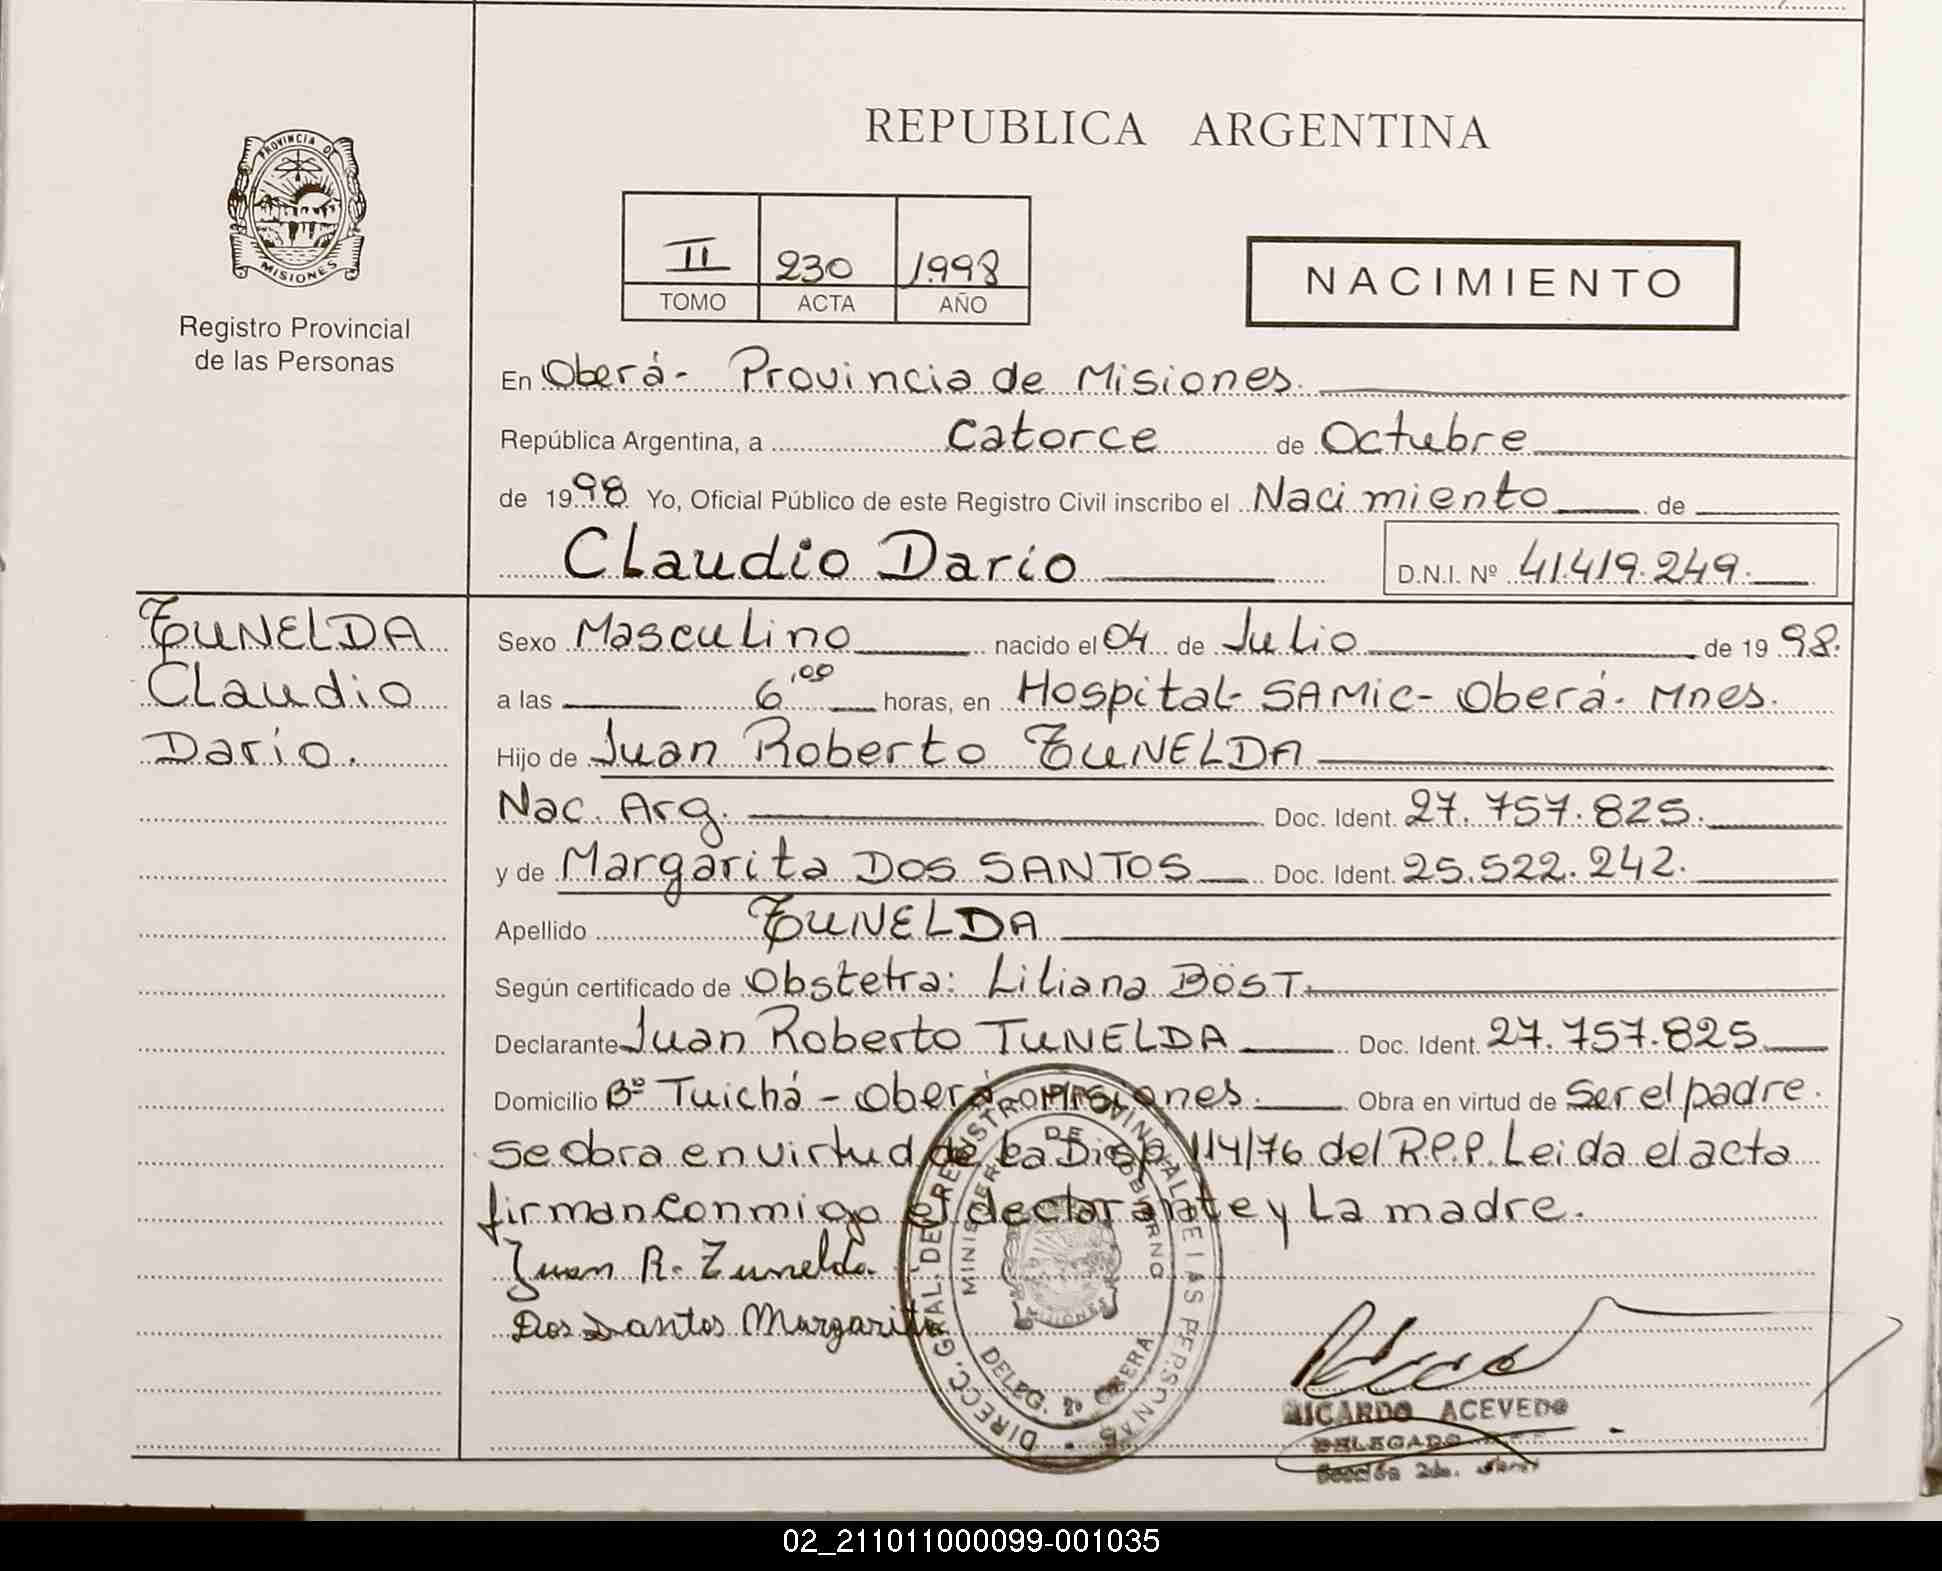 REPUBLICA ARGENTINA
PROVINCIA DE
MISIONES
Registro Provincial
de las Personas
II 230 1998
TOMO ACTA AÑO
NACIMIENTO
En Oberá- Provincia de Misiones.
República Argentina, a catorce de Octubre
de 1998 Yo, Oficial Público de este Registro Civil inscribo el Nacimiento de
Claudio Darío D.N.I. Nº 41.419.249.
TUNELDA
Claudio
Darío.
Sexo Masculino nacido el 04 de Julio de 1998.
a las 6,00 horas, en Hospital- SAMIC- Oberá- Mnes.
Hijo de Juan Roberto TUNELDA
Nac. Arg. Doc. Ident. 27.757.825.
y de Margarita DOS SANTOS Doc. Ident. 25.522.242.
Apellido TUNELDA
Según certificado de Obstetra: Liliana BÖST.
Declarante Juan Roberto TUNELDA Doc. Ident. 27.757.825
Domicilio Bº Tuichá - Oberá Misiones. Obra en virtud de Ser el padre.
se obra en virtud de La Disp 114/76 del R.P.P. Leida el acta
firman conmigo el declarante y La madre.
Juan R. Tunelda
Dos Santos Margarita
DIRECC. GRAL. DEL REGISTRO PROVINCIAL DE LAS PERSONAS
MINISTERIO DE GOBIERNO
MISIONES
DELEG. 2º OBERA
RICARDO ACEVEDO
DELEGADO
Sección 2da.
02_211011000099-001035